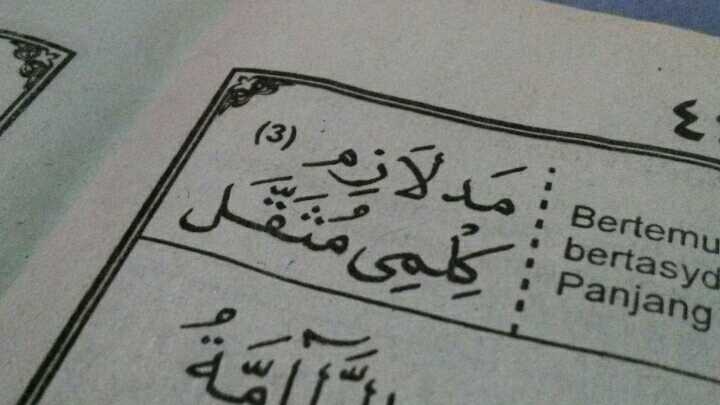 ٤
(3) مَد لَازِمِ
كِلْمِى مُثَقَّل
Bertemu
bertasyd
Panjang